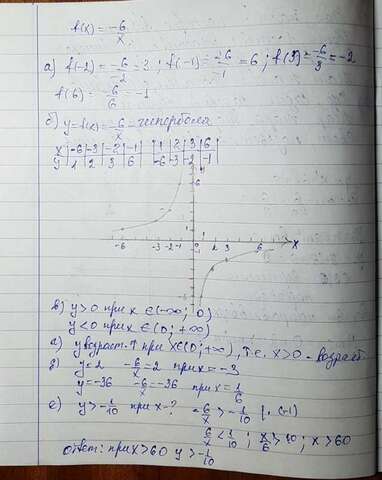 f(x) = -6/x
а) f(-2) = -6/-2 = 2 ; f(-1) = -6/-1 = 6 ; f(3) = -6/3 = -2
f(6) = -6/6 = -1
б) y = f(x) = -6/x - гипербола
x | -6 | -3 | -2 | -1 | 1 | 2 | 3 | 6 |
y | 1 | 2 | 3 | 6 | -6 | -3 | -2 | -1 |
y
6
1
-6 -3 -2 -1 0 2 3 6 x
в) y > 0 при x ∈ (-∞; 0)
y < 0 при x ∈ (0; +∞)
y возраст. ↑ при x ∈ (0; +∞), т.е. x > 0 - возраст
y = 2 -6/x = 2 при x = -3
y = -36 -6/x = -36 при x = 1/6
е) y > -1/10 при x - ? -6/x > -1/10 |·(-1)
6/x < 1/10 ; x/6 > 10 ; x > 60
ответ: при x > 60 y > -1/10